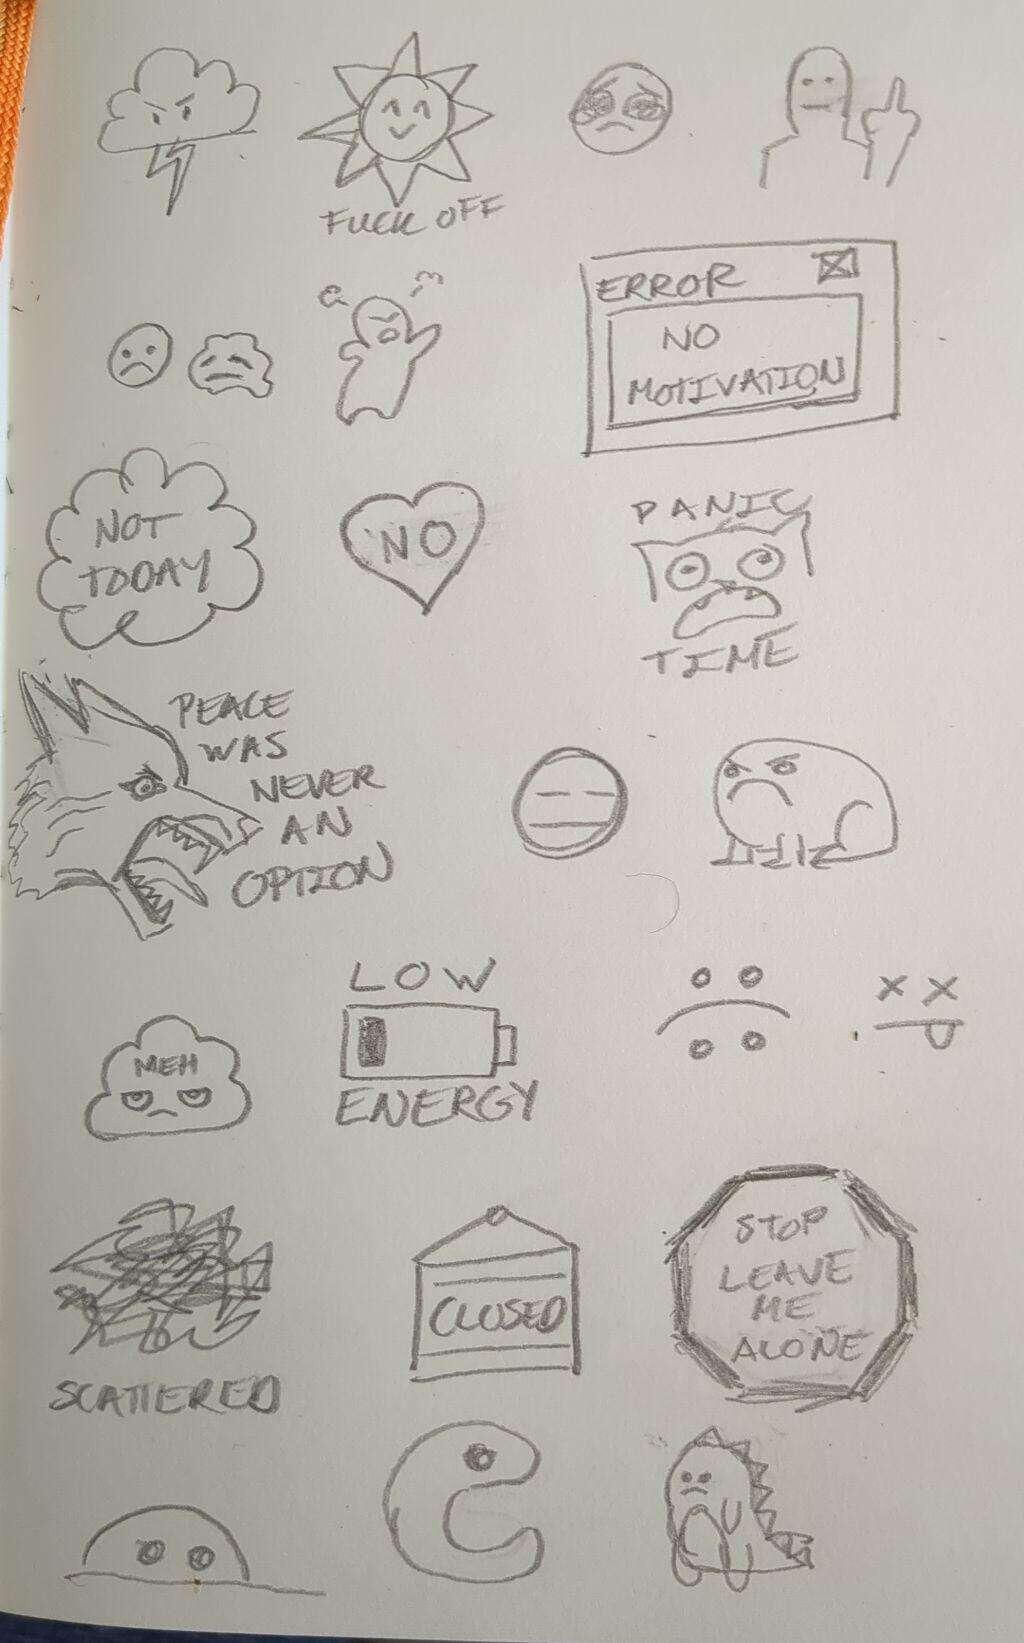 FUCK OFF
ERROR
NO
MOTIVATION
NOT
TODAY
NO
PANIC
TIME
PEACE
WAS
NEVER
AN
OPTION
MEH
LOW
ENERGY
SCATTERED
CLOSED
STOP
LEAVE
ME
ALONE